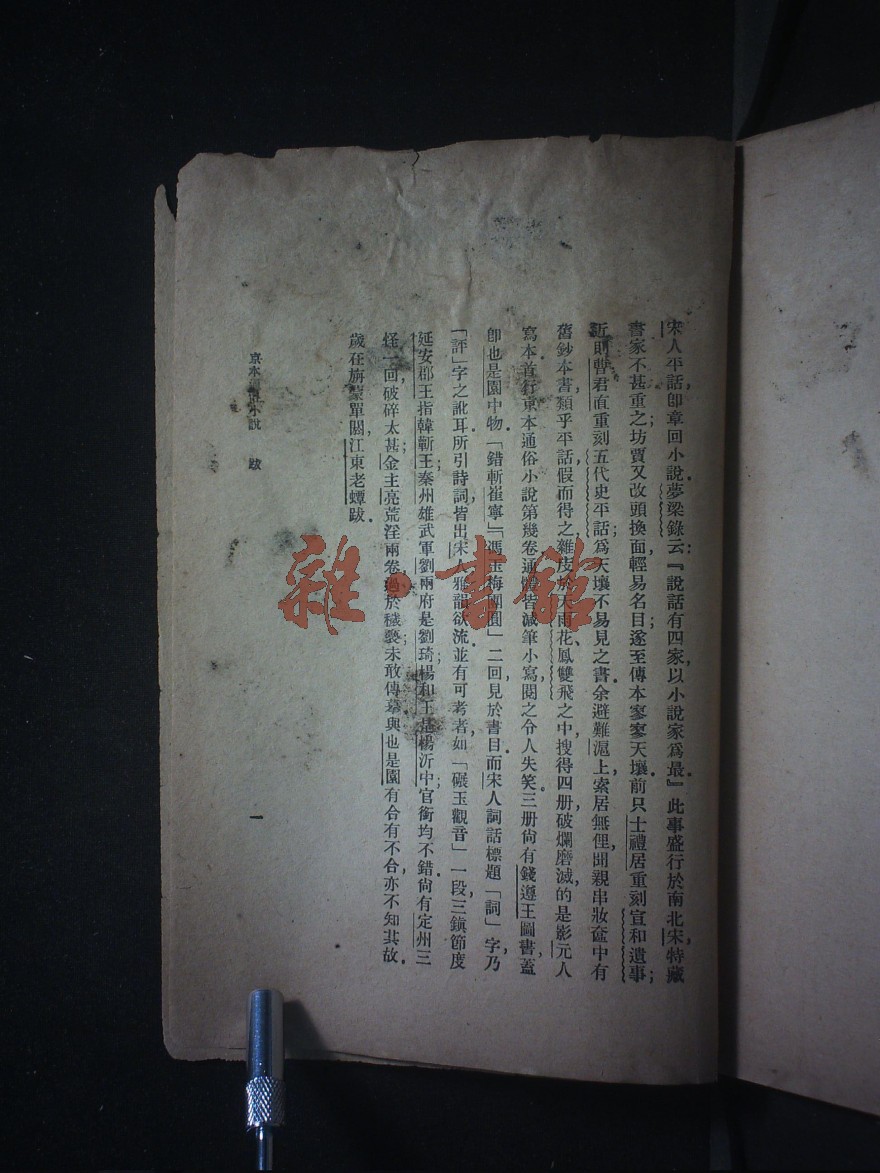 宋人平話，卽章回小說。夢梁錄云：『說話有四家，以小說家爲最。』此事盛行於南北宋，特藏
書家不甚重之；坊賈又改頭換面，輕易名目，遂至傳本寥寥天壤。前只士禮居重刻宣和遺事；
近則曹君直重刻五代史平話，爲天壤不易見之書。余避難滬上，索居無俚，聞親串妝奩中有
舊鈔本書，類乎平話，假而得之，雜庋於天雨花、鳳雙飛之中，搜得四册，破爛磨滅，的是影元人
寫本。首行京本通俗小說第幾卷，通體皆減筆小寫，閱之令人失笑。三册尙有錢遵王圖書，蓋
卽也是園中物。「錯斬崔寧」「馮玉梅團圓」二回，見於書目。而宋人詞話標題「詞」字乃
「評」字之訛耳。所引詩詞，皆出宋人，雅韻欲流，並有可考者：如「碾玉觀音」一段，三鎭節度
延安郡王指韓蘄王，秦州雄武軍劉兩府是劉琦，楊和王是楊沂中，官銜均不錯。尙有定州三
怪一回，破碎太甚；金主亮荒淫兩卷，過於穢褻，未敢傳摹。與也是園有合有不合，亦不知其故。
歲在旃蒙單閼，江東老蟫跋。
京本通俗小說　跋
一
雜·書館